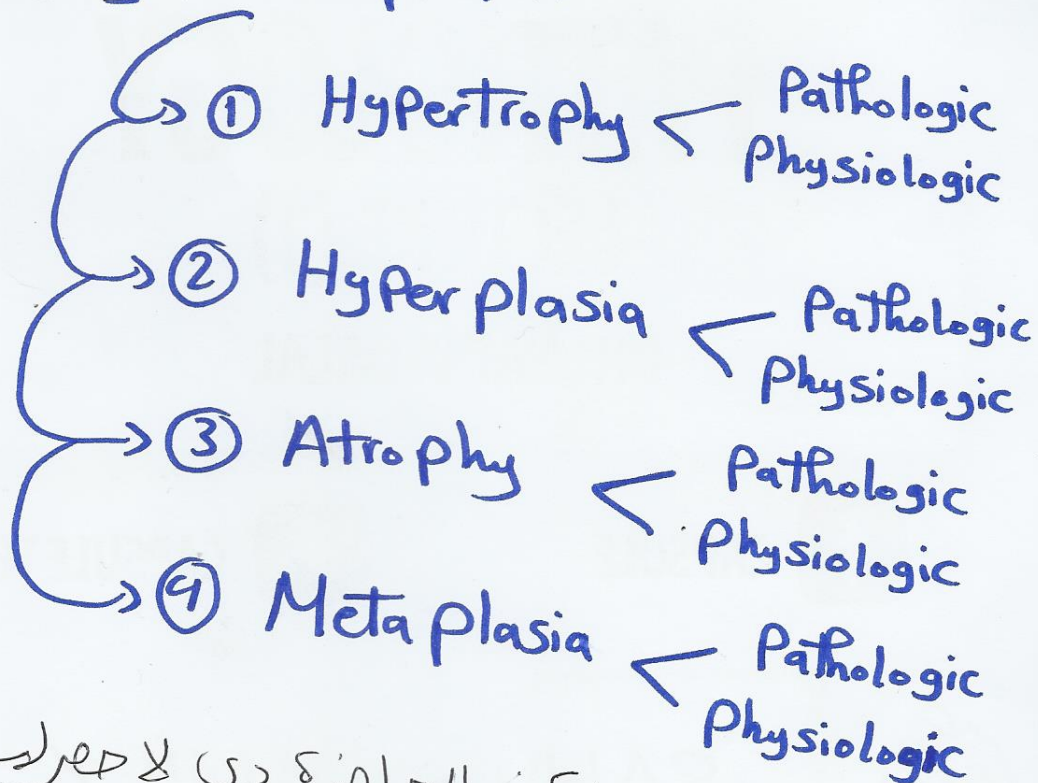 ① Hypertrophy < Pathologic
Physiologic
② Hyperplasia < Pathologic
Physiologic
③ Atrophy < Pathologic
Physiologic
④ Metaplasia < Pathologic
Physiologic